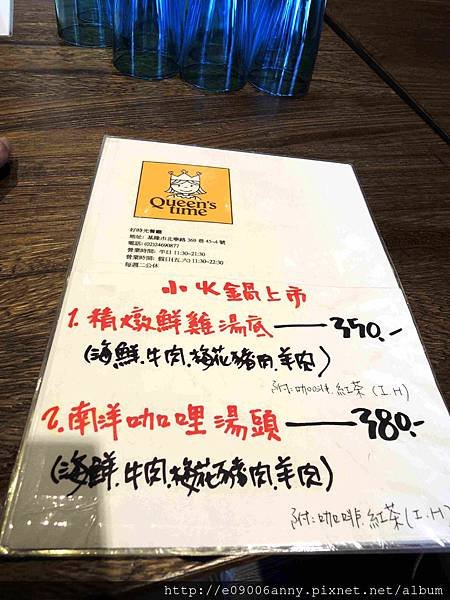 Queen's
time
好時光餐廳
地址: 基隆市北寧路 369 巷 45-4 號
電話:(02)24690877
營業時間: 平日 11:30~21:30
營業時間: 假日(五.六) 11:30~22:30
每週二公休
小火鍋上市
1.精燉鮮雞湯底—350.-
(海鮮.牛肉.梅花豬肉.羊肉)
附:咖啡.紅茶(I.H)
2.南洋咖哩湯頭—380.-
(海鮮.牛肉.梅花豬肉.羊肉)
附:咖啡.紅茶(I.H)
http://e09006anny.pixnet.net/album